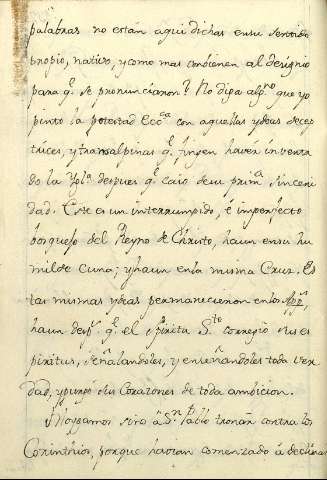 palabras no están aqui dichas en su sentido
propio, nativo, y como mas combienen al designio
para q.e se pronunciaron? No diga alg.no que yo
pinto la potestad Ecc.ca con aquellas ydeas
trices, y transalpinas q.e finjen haver inventa
do la Ygl.a despues q.e caió de su prim.a sinceri
dad. Este es un interrumpido, é imperfecto
bosquejo del Reyno de Christo, haun en su hu
milde Cuna; y haun en la misma Cruz. Es
tas mismas ydeas permanecieron en los App.s,
haun desp.s q.e el Spirita S.to corregió sus es
piritus, señalandoles, y enseñandoles toda ver
dad, y purgó sus Corazones de toda ambicion.
Hoygamos sino á S.n Pablo tronar contra los
Corinthios, porque havian comenzado á declinar